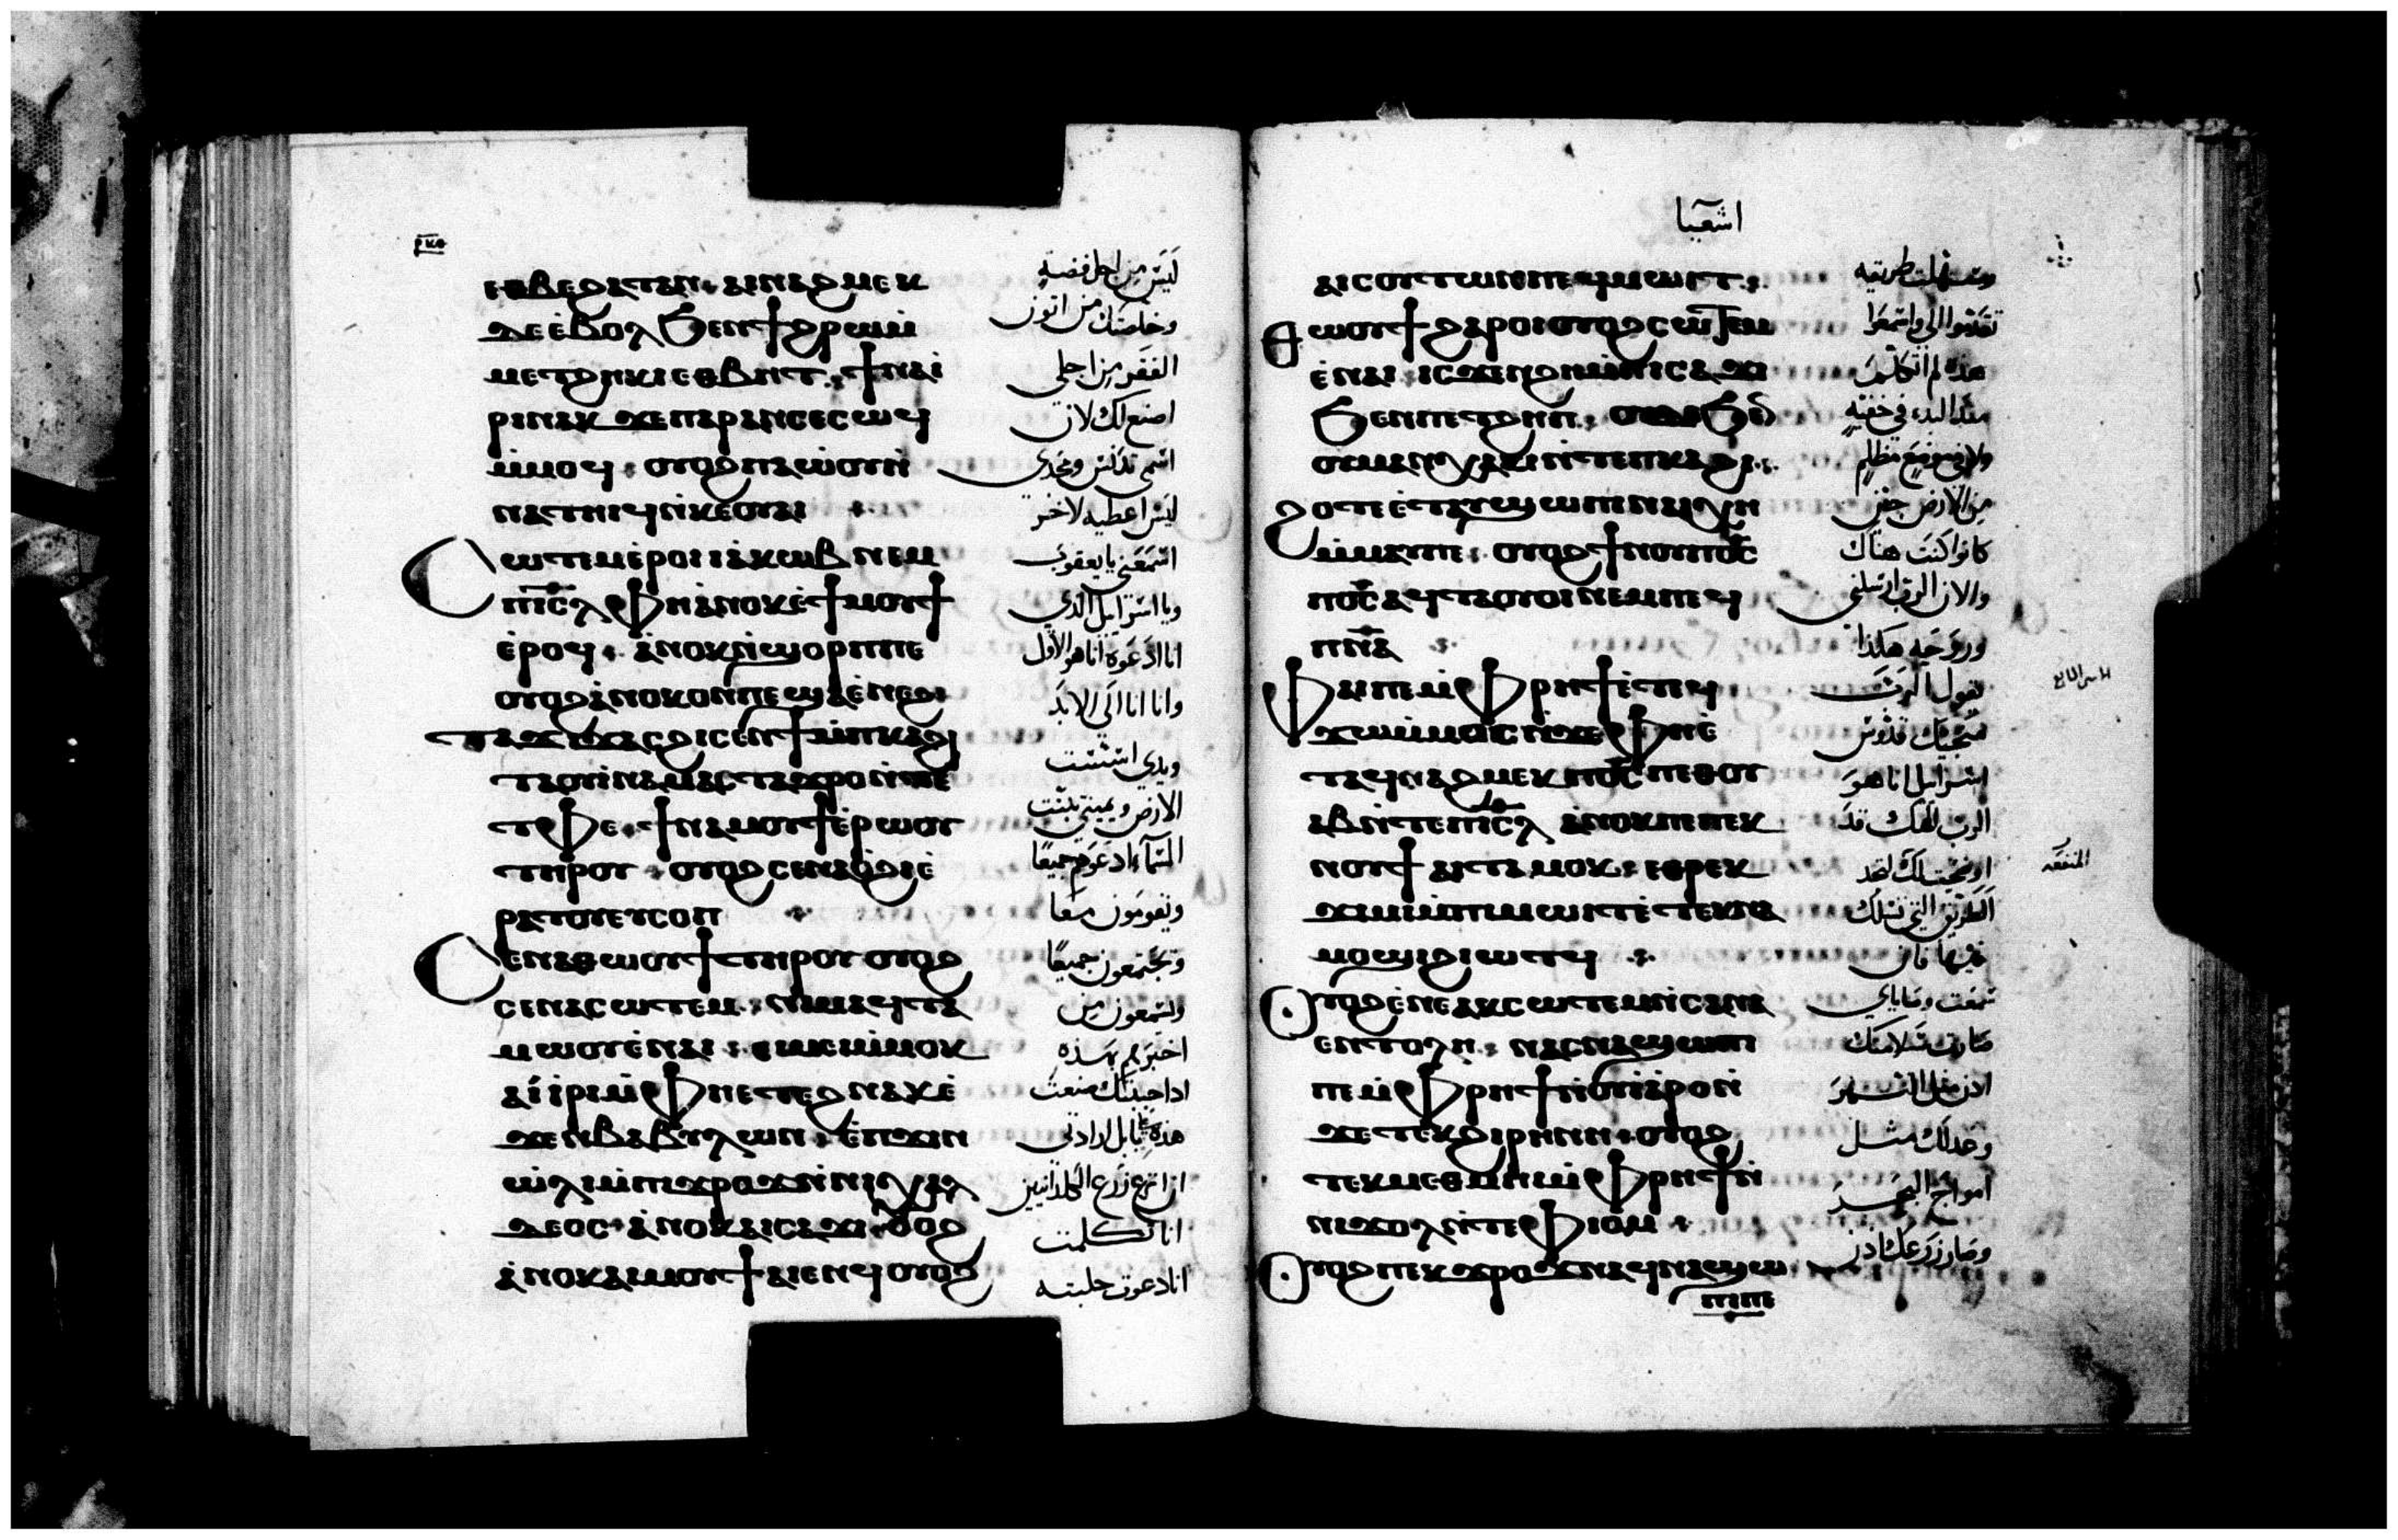 ⲣⲕⲑ
ⲉⲑⲃⲉϩⲁⲧⲁⲛ ⲁⲓⲛⲁϩⲙⲉⲕ
ⲇⲉⲉ̀ⲃⲟⲗϧⲉⲛϯϩⲣⲱⲙ̀
ⲙⲉⲧϩⲏⲕⲓⲉⲑⲃⲏⲧ ϯⲛⲁⲓ
ⲣⲓⲛⲁⲕ ϫⲉⲡⲁⲣⲁⲛⲥⲉⲥⲱϥ
ⲙ̀ⲙⲟϥ ⲟⲩⲟϩⲡⲁⲱ̀ⲟⲩⲛ̀
ⲛⲁⲧⲏⲓϥⲛ̀ⲕⲉⲟⲩⲁⲓ
Ⲥⲱⲧⲉⲙⲉ̀ⲣⲟⲓⲓⲁⲕⲱⲃ ⲛⲉⲙ
ⲡⲓⲥ̅ⲗ ⲫⲏⲁ̀ⲛⲟⲕⲉ̀ϯⲙⲟⲩϯ
ⲉ̀ⲣⲟϥ ⲁ̀ⲛⲟⲕⲡⲉϣⲟⲣⲡⲡⲉ
ⲟⲩⲟϩⲁ̀ⲛⲟⲕⲟⲛⲡⲉϣⲁⲉ̀ⲛⲉϩ
ⲧⲁϫⲓϫⲁⲥϩⲓⲥⲉⲛϯⲙ̀ⲡⲕⲁϩⲓ
ⲧⲁⲟⲩⲓ̀ⲛⲁⲙⲁⲥⲧⲁϫⲣⲟⲛ̀ⲧⲉ
ⲧⲫⲉ ϯⲛⲁⲙⲟⲩϯⲉ̀ⲣⲱⲟⲩ
ⲧⲏⲣⲟⲩ ⲟⲩⲟϩⲥⲉⲛⲁⲟ̀ϩⲓⲉ̀
ⲣⲁⲧⲟⲩⲉⲩⲥⲟⲡ
Ⲥⲉⲛⲁⲑⲱⲟⲩϯⲧⲏⲣⲟⲩ ⲟⲩⲟϩ
ⲥⲉⲛⲁⲥⲱⲧⲉⲙ ⲛⲓⲙⲁϥⲧⲁ
ⲙⲱⲟⲩⲉ̀ⲛⲁⲓ ⲉⲓⲙⲉⲓⲙ̀ⲙⲟⲕ
ⲁⲓⲓ̀ⲣⲓⲙ̀ⲫⲏⲉⲧⲉϩⲛⲁⲕⲉ̀
ϫⲉⲛⲃⲁⲃⲩⲗⲱⲛ ⲉ̀ⲡϫⲓⲛ
ⲱ̀ⲗⲓⲙ̀ⲡϫⲣⲟϫⲛ̀ⲛⲓⲭⲁⲗ
ⲇⲉⲟⲥ ⲁ̀ⲛⲟⲕⲁⲓⲥⲁϫⲓ ⲟⲩⲟϩ
ⲁ̀ⲛⲟⲕⲁⲓⲙⲟⲩϯ ⲁⲓⲉⲛϥ ⲟⲩⲟϩ
ليس من اجل فضه
وخلصتك من اتون
الفقر من اجلي
اصنع لك لان
اسمي تدنس ومجدي
ليس اعطيه لاخر
اسمعني يا يعقوب
ويا اسرائيل الذي
انا ادعوه انا هو الاول
وانا انا الى الابد
ويدي اسست
الارض ويميني ثبتت
السماء ادعوهم جميعًا
ويقومون معا
وتجتمعون جميعًا
وتسمعون من
اخبرهم بهذه
اذا حببتك صنعت
هذه بابل ارادتي
ان انزع زرع الكلدانيين
انا تكلمت
انا دعوت جلبته
اشعيا
ⲁⲓⲥⲟⲩⲧⲱⲛⲡⲉϥⲙⲱⲓⲧ
Ⲑⲱⲟⲩϯϩⲁⲣⲟⲓⲟⲩⲟϩⲥⲱⲧⲉⲙ
ⲉ̀ⲛⲁⲓ ⲓⲥϫⲉⲛϩⲏⲙ̀ⲡⲓⲥⲁϫⲓ
ϧⲉⲛⲡⲉⲧϩⲏⲡ ⲟⲩⲇⲉϧⲉⲛ
ⲟⲩⲙⲁⲛ̀ⲭⲁⲕⲓⲛ̀ⲧⲉⲡⲕⲁϩⲓ
ϩⲟⲧⲉⲉ̀ⲧⲁⲩϣⲱⲡⲓ ⲛⲁⲓⲭⲏ
ⲙ̀ⲙⲁⲩⲡⲉ ⲟⲩⲟϩϯⲛⲟⲩⲡⲟ̅ⲥ̅
ⲡⲟ̅ⲥ̅ ⲁϥⲧⲁⲟⲩⲟⲓⲛⲉⲙⲡⲉϥ
ⲡⲛ̅ⲁ
Ⲫⲁⲓⲡⲉⲙ̀ⲫⲣⲏϯⲉ̀ⲧⲉϥ
ϫⲱⲙ̀ⲙⲟⲥⲛ̀ϫⲉⲫⲏⲉ̀
ⲧⲁϥⲛⲁϩⲙⲉⲕ ⲡⲟ̅ⲥ̅ ⲡⲉⲑⲟⲩ
ⲁⲃⲛ̀ⲧⲉⲡⲓⲥ̅ⲗ ⲁ̀ⲛⲟⲕⲡⲉⲡⲉⲕ
ⲛⲟⲩϯ ⲁⲓⲧⲁⲙⲟⲕ ⲉⲑⲣⲉⲕ
ϫⲓⲙⲓⲙ̀ⲡⲓⲙⲱⲓⲧⲉ̀ⲧⲉⲕⲛⲁ
ⲙⲟϣⲓϩⲓⲱⲧϥ
Ⲟⲩⲟϩⲉ̀ⲛⲉⲁⲕⲥⲱⲧⲉⲙⲛ̀ⲥⲁⲛⲁ
ⲉⲛⲧⲟⲗⲏ ⲛⲁⲥⲛⲁϣⲱⲡⲓ
ⲡⲉⲙ̀ⲫⲣⲏϯⲛ̀ⲟⲩⲓⲁⲣⲟⲛ̀
ϫⲉⲧⲉⲕϩⲓⲣⲏⲛⲏ ⲟⲩⲟϩ
ⲧⲉⲕⲙⲉⲑⲙⲏⲓⲙ̀ⲫⲣⲏϯⲛ̀
ⲛⲓϫⲟⲗⲛ̀ⲧⲉⲫⲓⲟⲙ
Ⲟⲩⲟϩⲡⲉⲕϫⲣⲟϫⲛⲁϥⲛⲁϣⲱ
ⲡⲓⲡⲉ
وسهلت طريقه
تقدموا الي واسمعوا
هذه لم اتكلم
منذ البدء في خفيه
ولا في موضع مظلم
من الارض حين
كانوا كنت هناك
والان الرب ارسلني
وروحه هكذا
يقول الرب
منجيك قدوس
اسرائيل انا هو
الرب الهك قد
اوضحت لك لتجد
الطريق التي تسلك
فيها فان
سمعت وصاياي
صارت سلامتك
اذن مثل النهر
وعدلك مثل
امواج البحر
وصار زرعك اذن